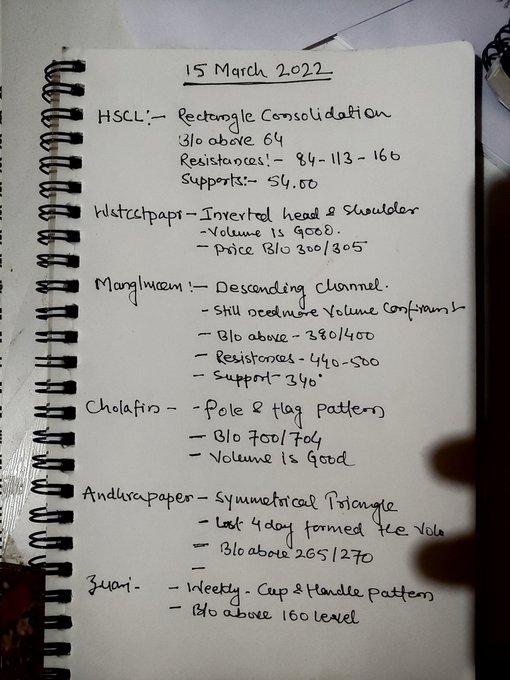 15 March 2022
HSCL:- Rectangle Consolidation
B/o above 64
Resistances:- 84-113-160
Supports:- 54.00
Wstcstpapr - Inverted head & Shoulder
- Volume is Good.
- Price B/o 300/305
Manglmcem:- Descending Channel.
- Still need more Volume
- B/o above - 380/400
- Resistances - 440-500
- Support 340
Cholafin - - Pole & flag pattern
- B/o 700/704
- Volume is Good
Andhrapaper - Symmetrical Triangle
- Last 4 day formed the Volu
- B/o above 265/270
-
Zuari- - Weekly - Cup & Handle pattern
- B/o above 160 level